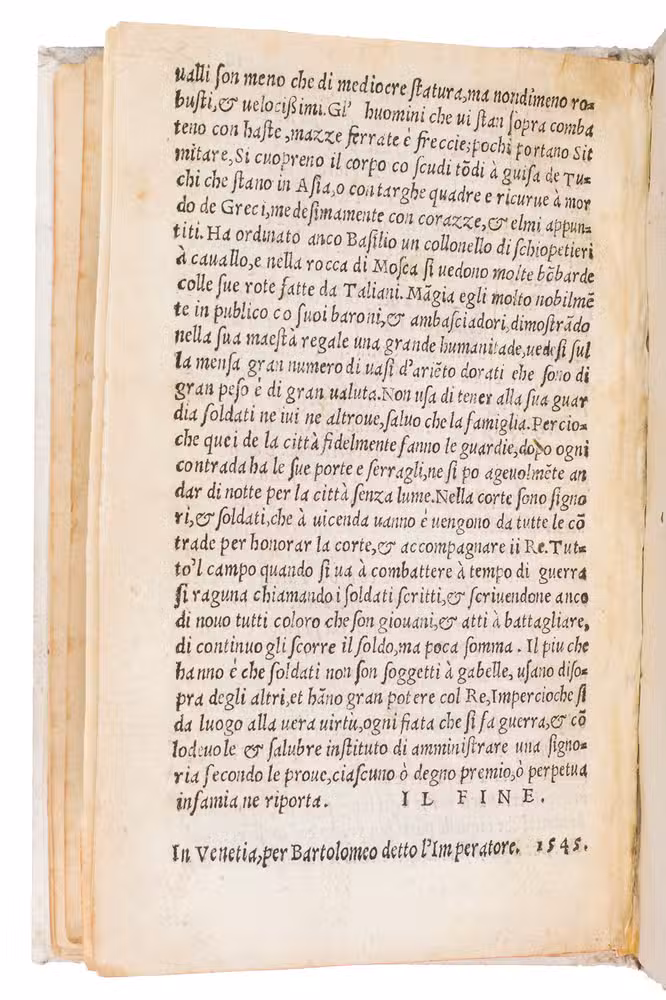 ualli ſon meno che di mediocre ſtatura,ma nondimeno ro-
buſti,& uelocißimi.Gl' huomini che ui ſtan ſopra comba
teno con haſte,mazze ferrate è freccie;pochi portano Sit
mitare,Si cuopreno il corpo co ſcudi tōdi à guiſa de Tu-
chi che ſtano in Aſia,o con targhe quadre e ricurue à mor
do de Greci,medeſimamente con corazze,& elmi appun-
titi.Ha ordinato anco Baſilio un collonello di ſchiopetieri
à cauallo,e nella rocca di Moſca ſi uedono molte bōbarde
colle ſue rote fatte da Taliani.Māgia egli molto nobilmē
te in publico co ſuoi baroni,& ambaſciadori,dimoſtrādo
nella ſua maeſtà regale una grande humanitade,uedeſi ſul
la menſa gran numero di uaſi d'ariēto dorati ehe ſono di
gran peſo è di gran ualuta.Non uſa di tener alla ſua guar
dia ſoldati ne iui ne altroue,ſaluo che la famiglia.Percio-
che quei de la città fidelmente fanno le guardie,dopo ogni
contrada ha le ſue porte e ſerragli,ne ſi po ageuolmēte an
dar di notte per la città ſenza lume.Nella corte ſono ſigno
ri,& ſoldati,che à uicenda uanno é uengono da tutte le cō
trade per honorar la corte,& accompagnare ii Re.Tut-
to'l campo quando ſi ua à combattere à tempo di guerra
ſi raguna chiamando i ſoldati ſcritti,& ſcriuendone anco
di nouo tutti coloro che ſon giouani,& atti à battagliare,
di continuo gli ſcorre il ſoldo,ma poca ſomma. Il piu che
hanno é che ſoldati non ſon ſoggetti à gabelle, uſano diſo-
pra degli altri,et hāno gran potere col Re,Impercioche ſi
da luogo alla uera uirtù,ogni fiata che ſi fa guerra,& cō
lodeuole & ſalubre inſtituto di amminiſtrare una ſigno-
ria ſecondo le proue,ciaſcuno ò degno premio,ò perpetua
infamia ne riporta. IL FINE.
In Venetia,per Bartolomeo detto l'Imperatore. 1545.